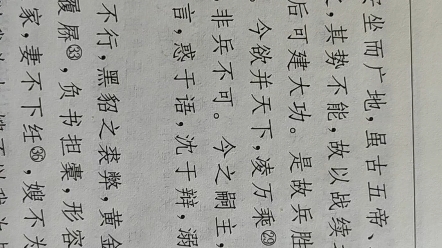 坐而广地，虽古五帝、
，其势不能，故以战续
后可建大功。是故兵胜
。今欲并天下，凌万乘㉙
非兵不可。今之嗣主，
言，惑于语，沈于辩，溺
不行，黑貂之裘弊，黄金
履屩㉝，负书担橐，形容
家，妻不下纴㊱，嫂不为